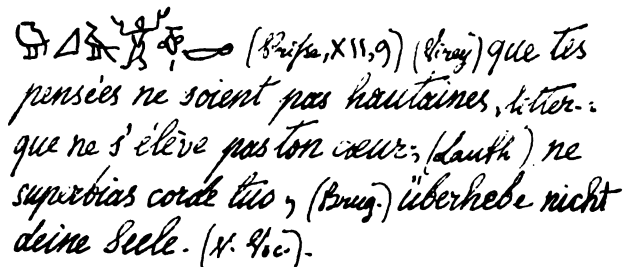 (Prisse, XII, 9) (Virey) que tes
pensées ne soient pas hautaines, litter.:
que ne s'élève pas ton cœur; (Lauth) ne
superbias corde tuo, (Brug.) überhebe nicht
deine Seele. (N. Voc.).